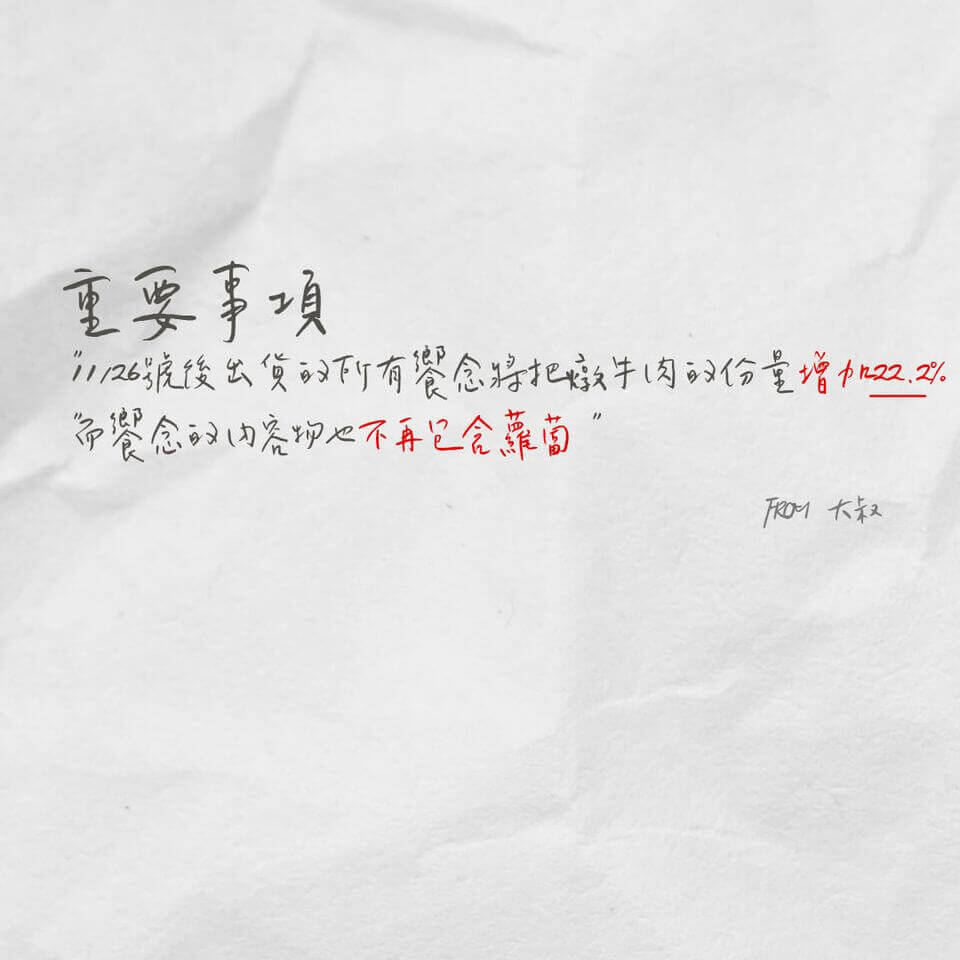 重要事項
"11/26號後出貨的所有饗念將把燉牛肉的份量增加22.2%
"而饗念的內容物也不再包含蘿蔔"
FROM 大叔